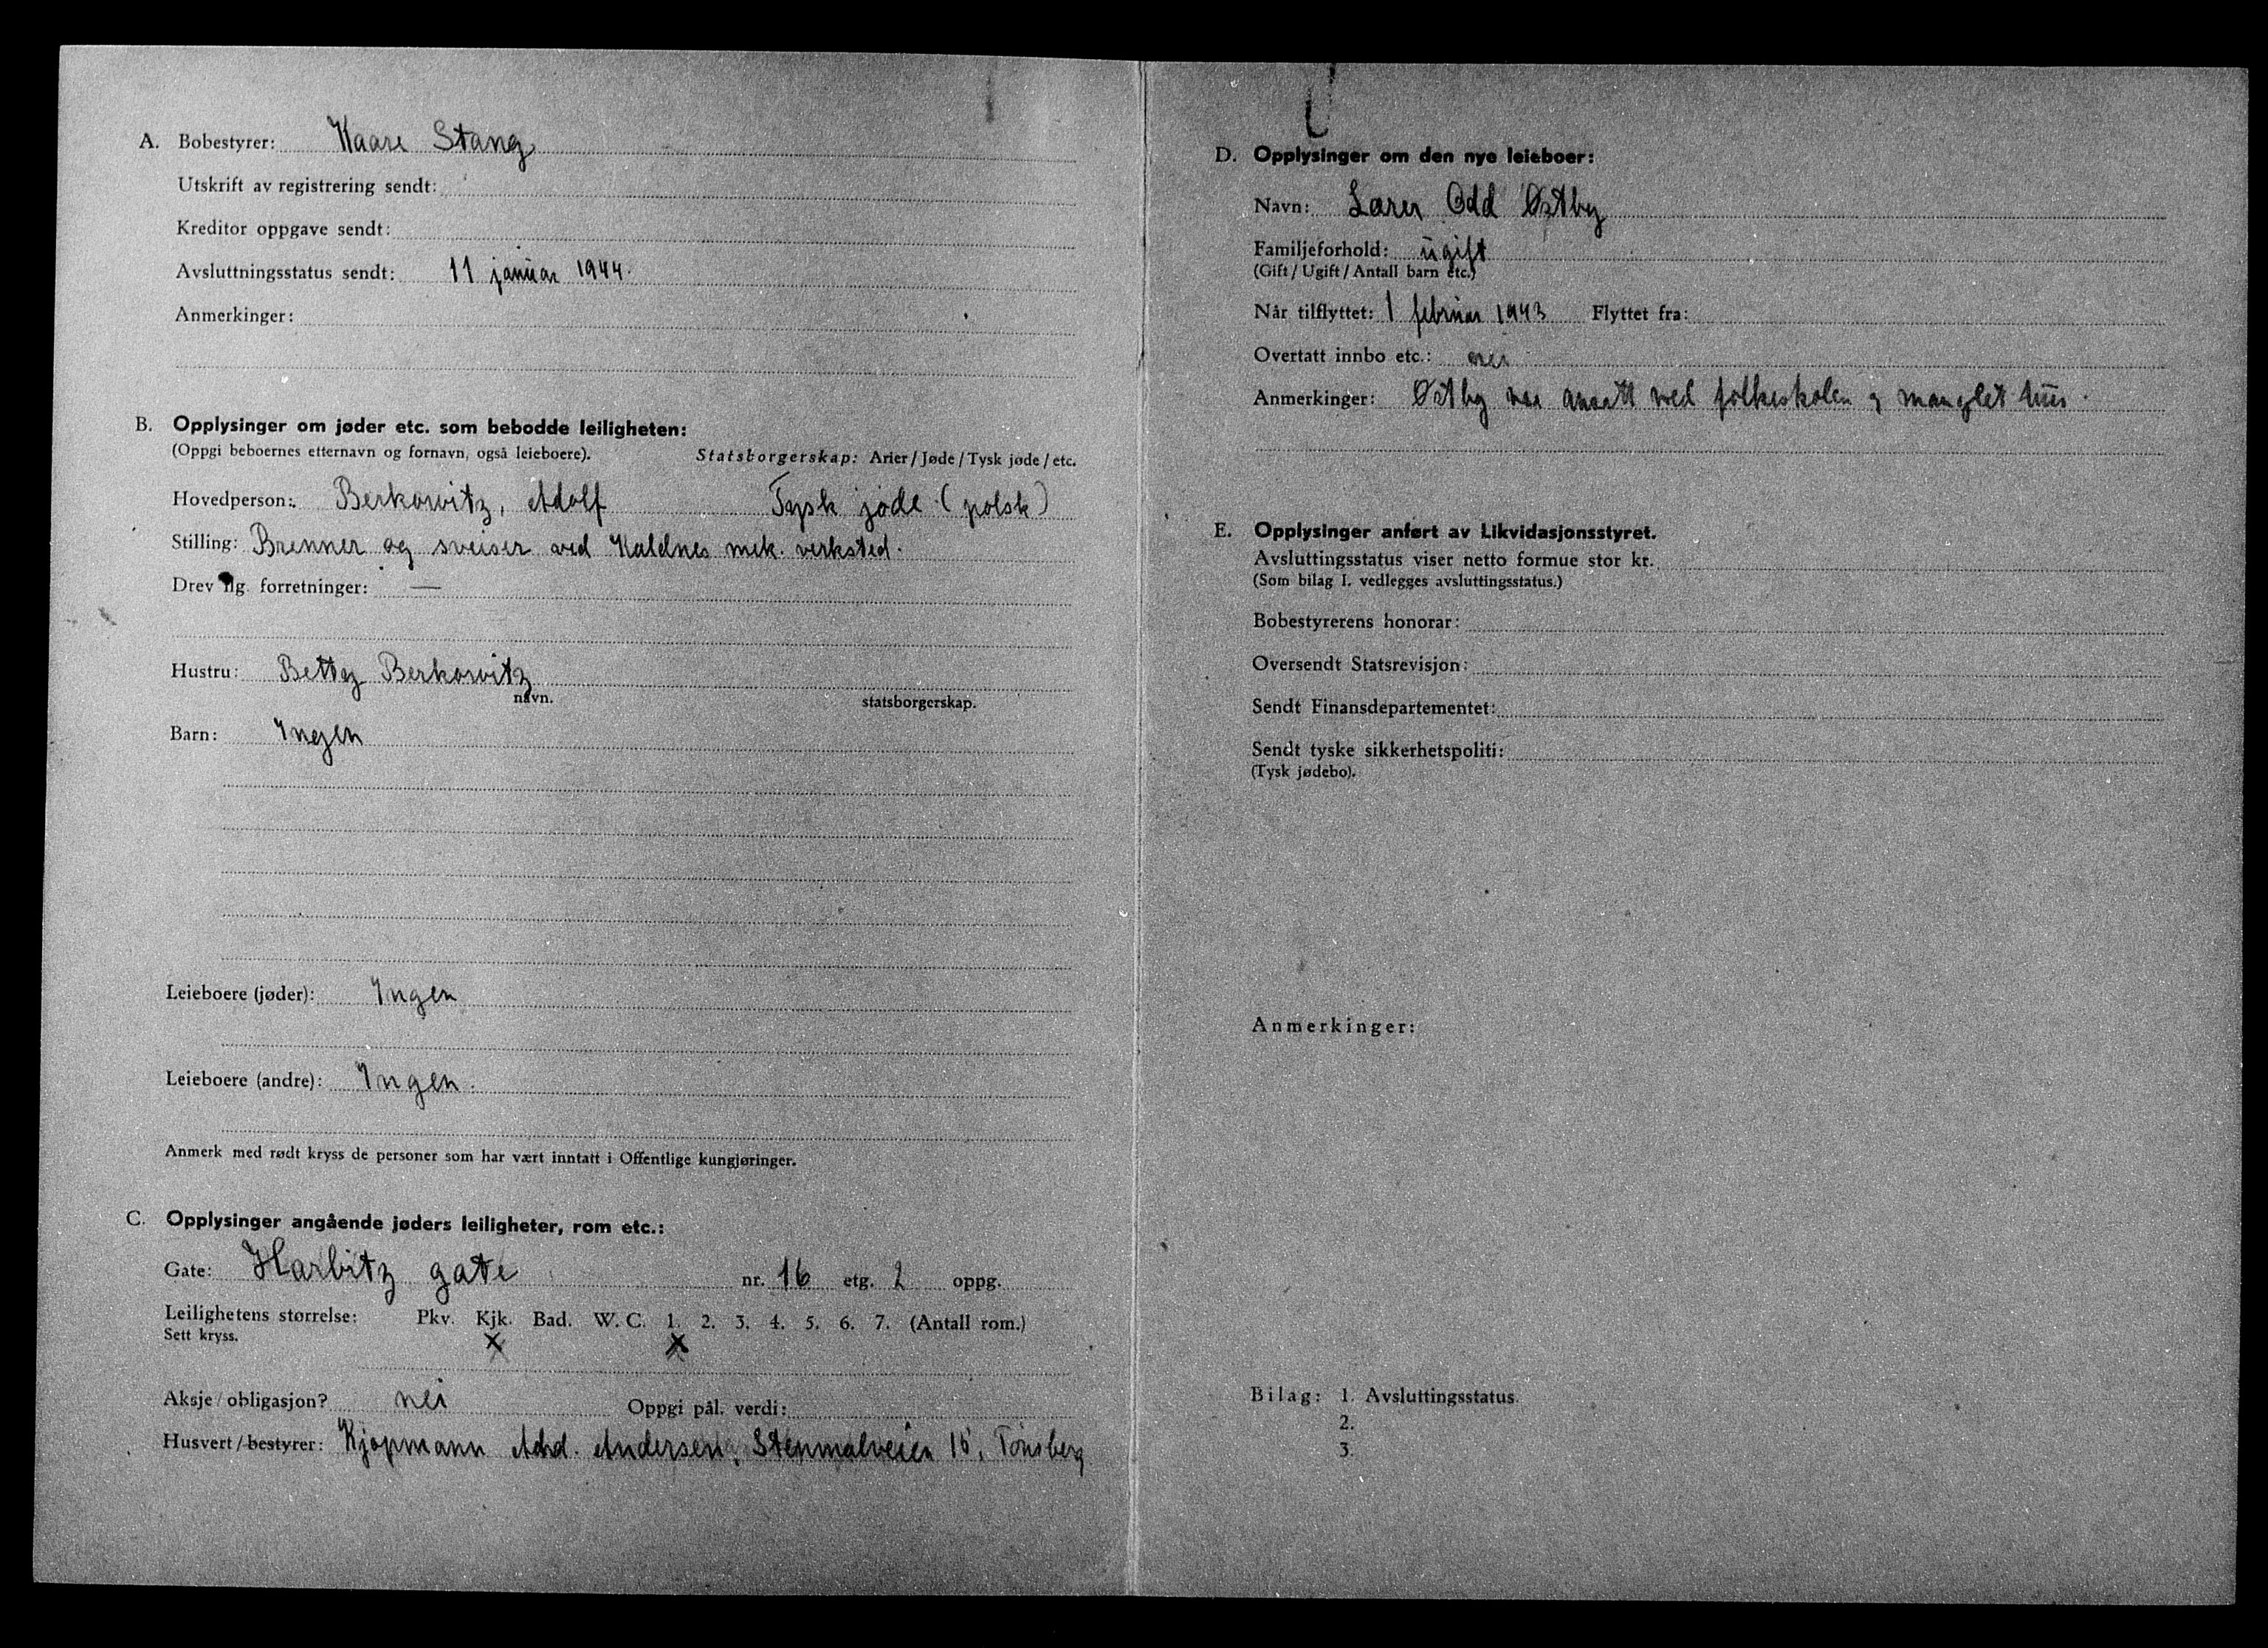 A. Bobestyrer: Kaare Stang
Utskrift av registrering sendt:
Kreditor oppgave sendt:
Avsluttningsstatus sendt: 11 januar 1944.
Anmerkinger:
B. Opplysinger om jøder etc. som bebodde leiligheten:
(Oppgi beboernes etternavn og fornavn, også leieboere). Statsborgerskap: Arier / Jøde / Tysk jøde / etc.
Hovedperson: Berkowitz, Adolf Tysk jøde (polsk)
Stilling: Brenner og sveiser ved Kaldnes mek. verksted.
Drev flg. forretninger: —
Hustru: Betty Berkowitz
navn. statsborgerskap.
Barn: Ingen
Leieboere (jøder): Ingen
Leieboere (andre): Ingen.
Anmerk med rødt kryss de personer som har vært inntatt i Offentlige kungjøringer.
C. Opplysinger angående jøders leiligheter, rom etc.:
Gate: Harbitz gate nr. 16 etg. 2 oppg.
Leilighetens størrelse: Pkv. Kjk. Bad. W. C. 1. 2. 3. 4. 5. 6. 7. (Antall rom.)
Sett kryss. X X
Aksje / obligasjon? nei Oppgi pål. verdi:
Husvert / bestyrer: Kjøpmann Andersen, Stenmalveien 15, Tønsberg
D. Opplysinger om den nye leieboer:
Navn: Lærer Odd Østby
Familjeforhold: ugift
(Gift / Ugift / Antall barn etc.)
Når tilflyttet: 1 februar 1943 Flyttet fra:
Overtatt innbo etc.: nei
Anmerkinger: Østby var ansatt ved folkeskolen og manglet hus.
E. Opplysinger anført av Likvidasjonsstyret.
Avsluttingsstatus viser netto formue stor kr.
(Som bilag I. vedlegges avsluttingsstatus.)
Bobestyrerens honorar:
Oversendt Statsrevisjon:
Sendt Finansdepartementet:
Sendt tyske sikkerhetspoliti:
(Tysk jødebo).
Anmerkinger:
Bilag: 1. Avsluttingsstatus.
2.
3.